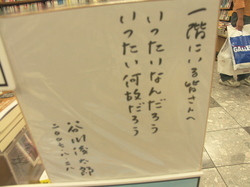 一階にいる皆さんへ
いったいなんだろう
いったい何故だろう
谷川俊太郎